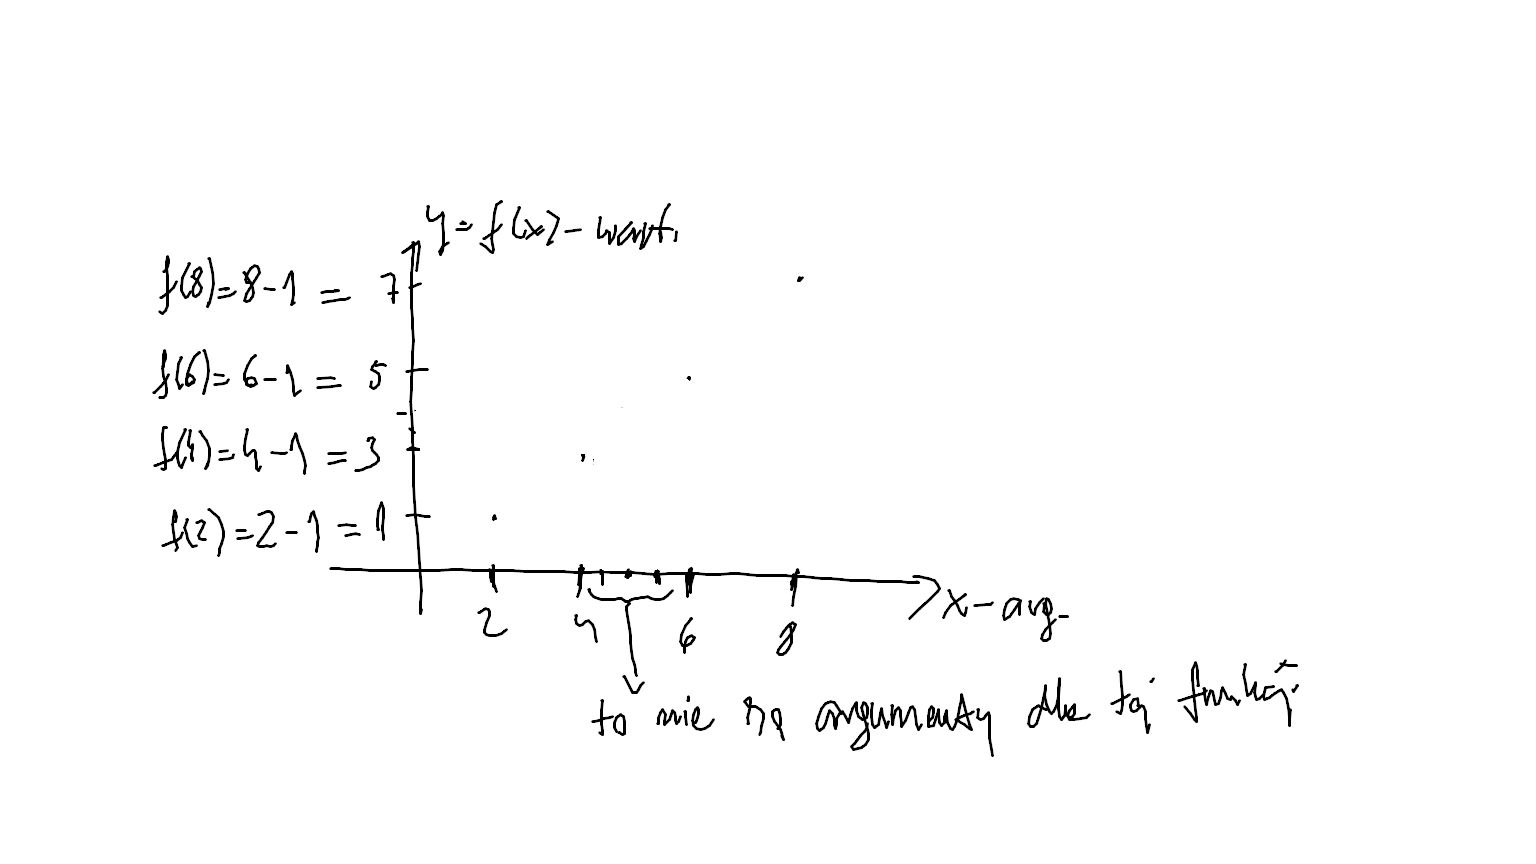 y = f(x) - wart.
f(8) = 8 - 1 = 7
f(6) = 6 - 1 = 5
f(4) = 4 - 1 = 3
f(2) = 2 - 1 = 1
2 4 6 8
x - arg.
to nie są argumenty dla tej funkcji